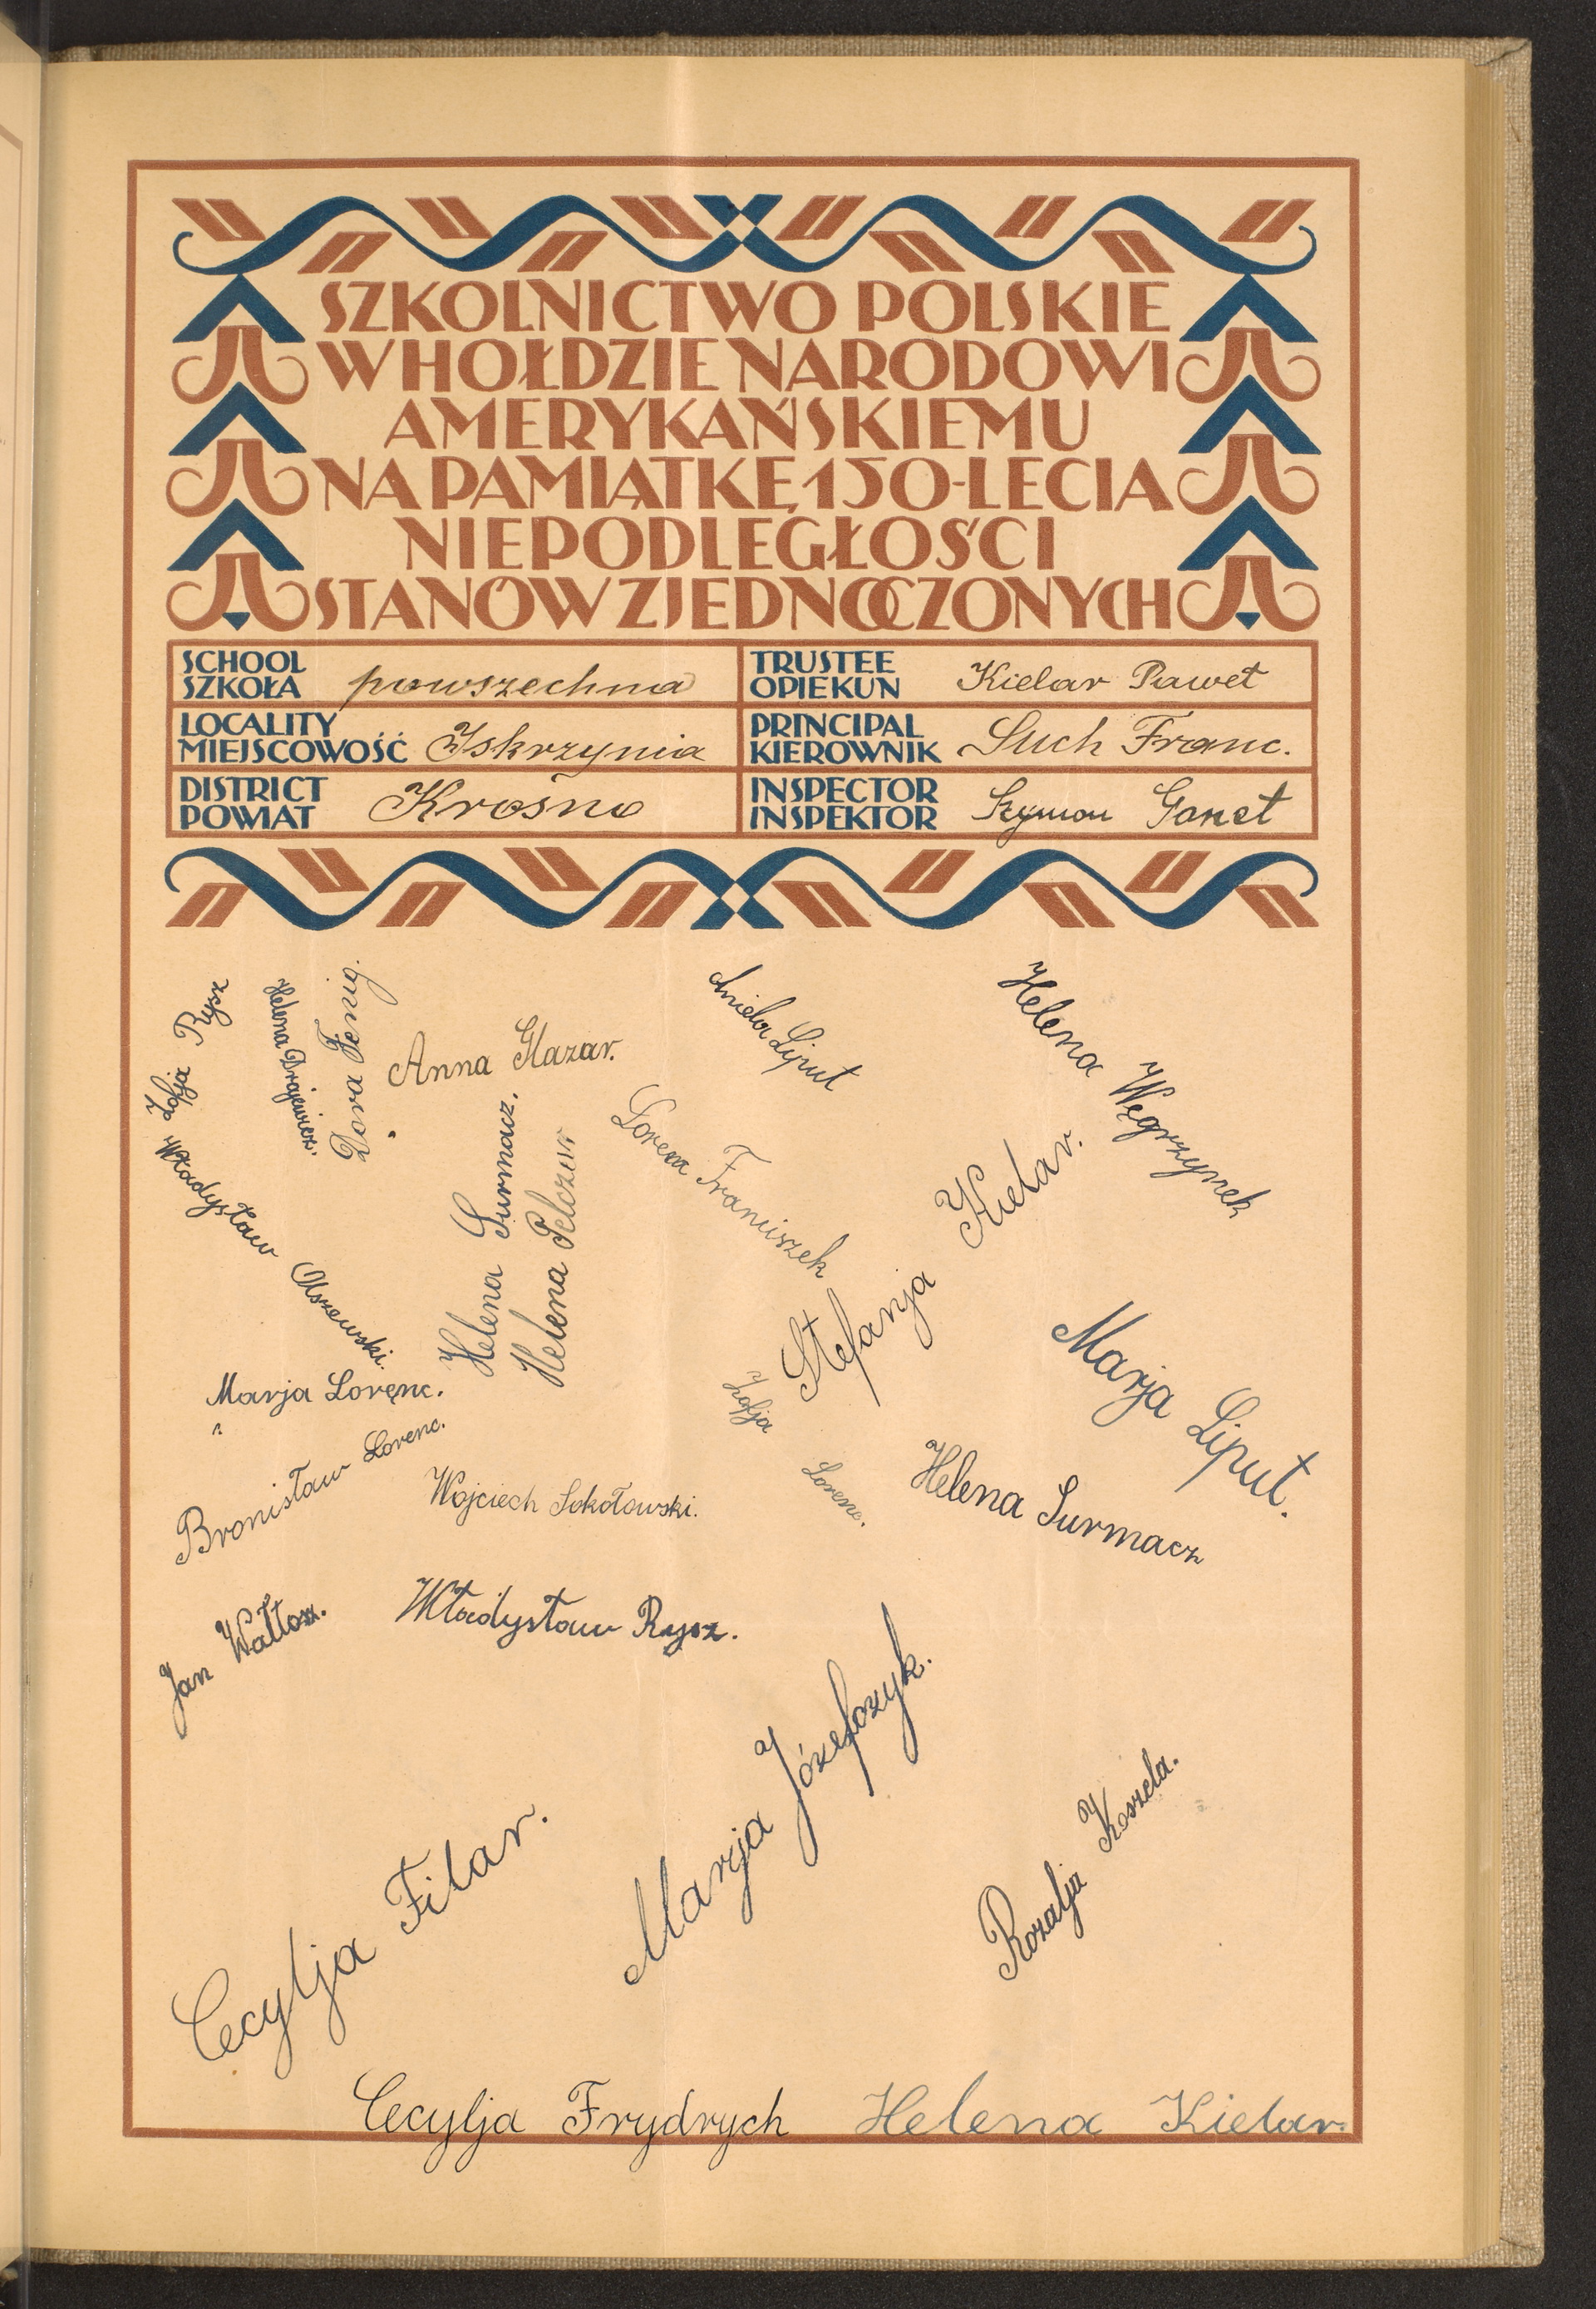 SZKOLNICTWO POLSKIE
W HOŁDZIE NARODOWI
AMERYKAŃSKIEMU
NA PAMIĄTKĘ 150-LECIA
NIEPODLEGŁOŚCI
STANÓW ZJEDNOCZONYCH
SCHOOL
SZKOŁA powszechna
TRUSTEE
OPIEKUN Kielar Paweł
LOCALITY
MIEJSCOWOŚĆ Iskrzynia
PRINCIPAL
KIEROWNIK Such Franc.
DISTRICT
POWIAT Krosno
INSPECTOR
INSPEKTOR Szymon Gonet
Zofja Rysz
Helena Drajewicz.
Dora Fenig.
Anna Glazar.
Aniela Liput
Helena Węgrzynek
Władysław Olszewski.
Helena Surmacz.
Helena Pelczar
Lorenz Franciszek
Stefanja Kielar.
Marja Liput.
Marja Lorenc.
Bronisław Lorenc.
Wojciech Sokołowski.
Zofja Lorenc.
Helena Surmacz
Jan
Władysław Rysz.
Cecylja Filar.
Marja Józefczyk.
Rozalja Koszela.
Cecylja Frydrych
Helena Kielar.